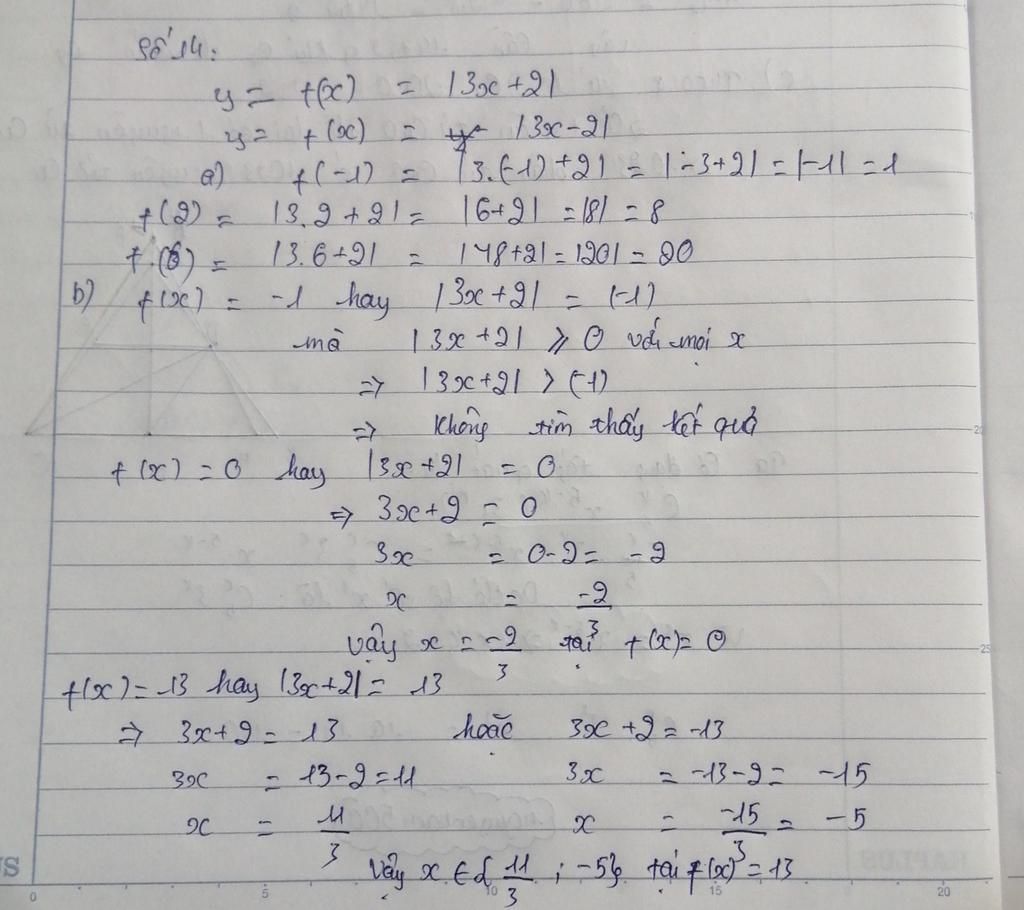 Số 14:
y = f(x) = |3x+2|
y = f(x) = |3x-2|
a) f(-1) = |3.(-1)+2| = |-3+2| = |-1| = 1
f(2) = |3.2+2| = |6+2| = |8| = 8
f.(6) = |3.6+2| = |18+2| = |20| = 20
b) f(x) = -1 hay |3x+2| = (-1)
mà |3x+2| ⩾ 0 với mọi x
=> |3x+2| > (-1)
=> không tìm thấy kết quả
f(x) = 0 hay |3x+2| = 0
=> 3x+2 = 0
3x = 0-2 = -2
x = -2/3
vậy x = -2/3 tại f(x) = 0
f(x) = 13 hay |3x+2| = 13
=> 3x+2 = 13 hoặc 3x+2 = -13
3x = 13-2 = 11 3x = -13-2 = -15
x = 11/3 x = -15/3 = -5
vậy x ∈ { 11/3 ; -5} tại f(x) = 13
0 5 10 15 20